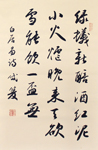 綠蟻新醅酒紅泥
小火爐晚來天欲
雪能飲一盃無
白居易詩